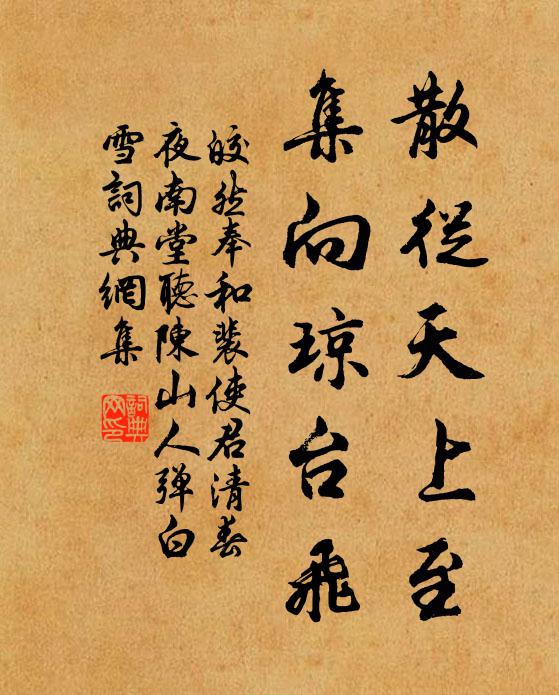 散從天上至
集向琼台飛
皎然奉和裴使君清春
夜南堂聽陳山人弹白
雪詞典網集
詞典
网印